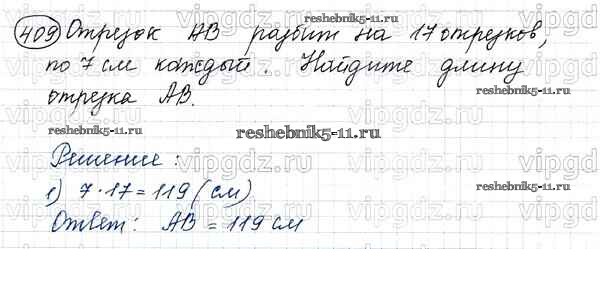 409 Отрезок АВ разбит на 17 отрезков,
по 7 см каждый. Найдите длину
отрезка АВ.
Решение:
1) 7·17=119 (см)
Ответ: АВ = 119 см
reshebnik5-11.ru
reshebnik5-11.ru
reshebnik5-11.ru
reshebnik5-11.ru
reshebnik5-11.ru
reshebnik5-11.ru
vipgdz.ru
vipgdz.ru
vipgdz.ru